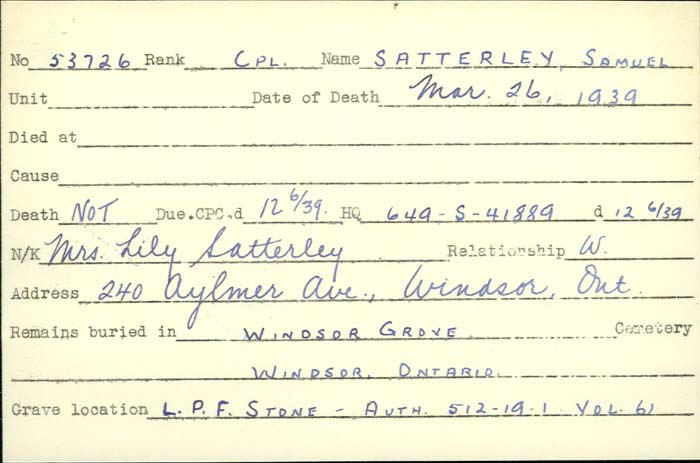 No 53726 Rank CPL. Name SATTERLEY, SAMUEL
Unit Date of Death Mar. 26, 1939
Died at
Cause
Death NOT Due.CPC.d 12 6/39. HQ 649-S-41889 d 12 6/39
N/K Mrs. Lily Satterley Relationship W.
Address 240 Aylmer Ave., Windsor, Ont.
Remains buried in WINDSOR GROVE Cemetery
WINDSOR, ONTARIO.
Grave location L.P.F. STONE - AUTH. 512-19-1 VOL. 61